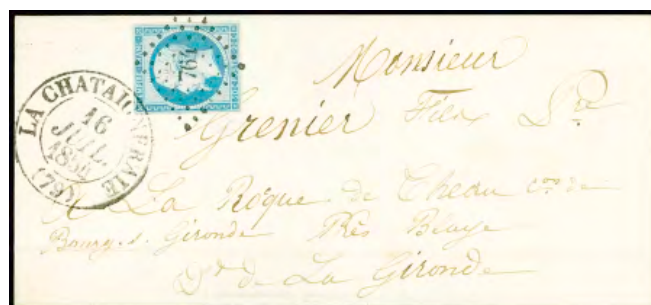 764
LA CHATAIGNERAIE
16
JUIL.
1854
(79)
Monsieur
Grenier Fils
A La Roque de Theau cne de
Bourg. s. Gironde Près Blaye
Dt de La Gironde